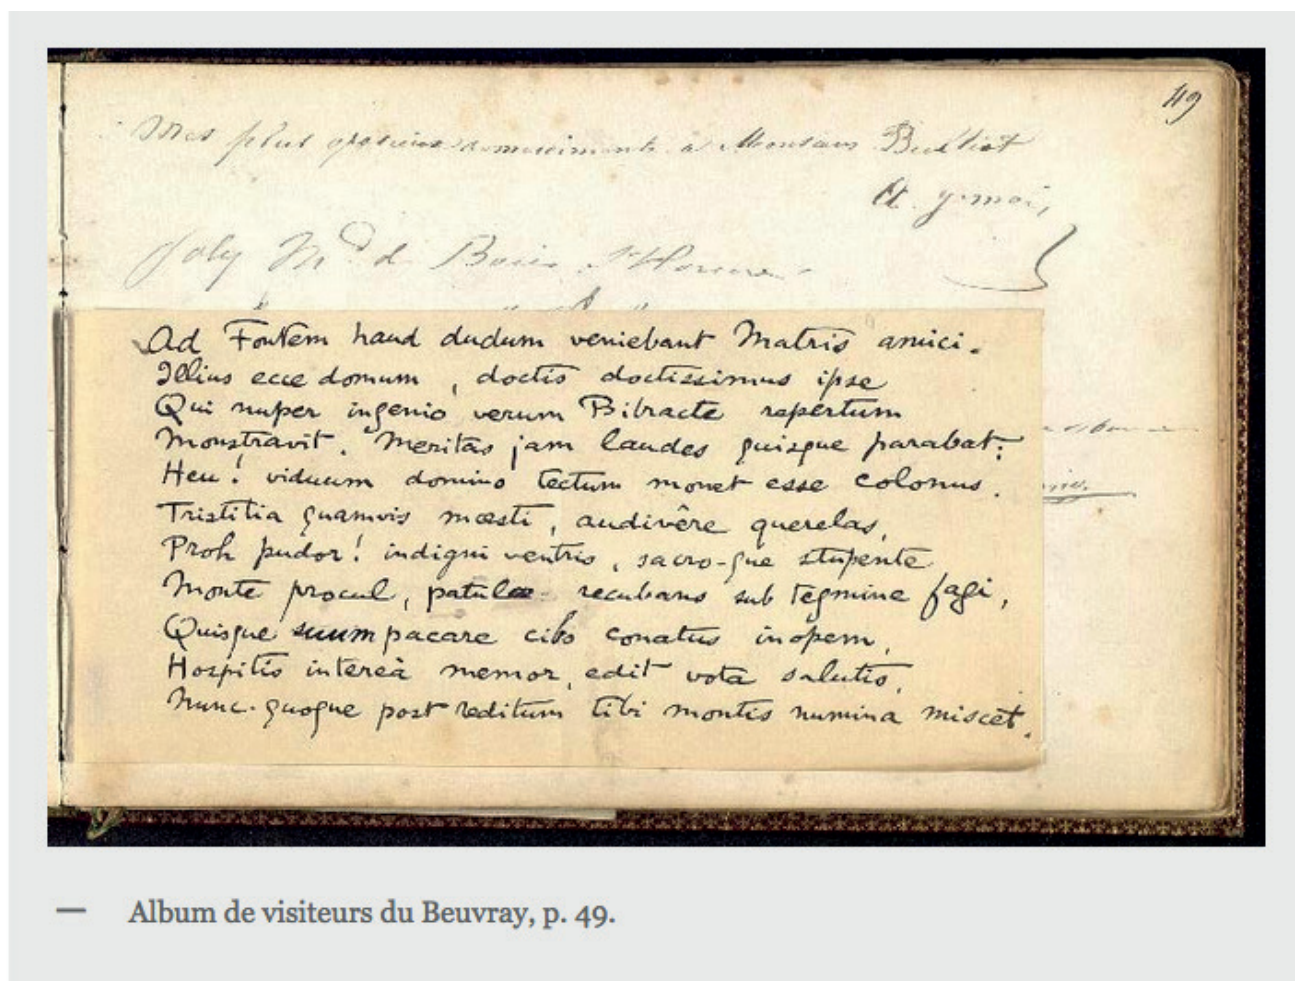 49
Mes plus gracieux remerciments à Monsieur Bulliot
Joly Md de Bois
Ad Fontem haud dudum veniebant Matris amici.
Illius ecce domum, doctis doctissimus ipse
Qui nuper ingenio verum Bibracte repertum
Monstravit. Meritas jam laudes quisque parabat:
Heu! viduum domino tectum monet esse colonus.
Tristitia quamvis mœsti, audivêre querelas,
Proh pudor! indigni ventris, sacro-que stupente
Monte procul, patulæ recubans sub tegmine fagi,
Quisque suum pacare cibo conatus inopem,
Hospitis intereà memor, edit vota salutis,
Nunc quoque post reditum tibi montis numina miscet.
— Album de visiteurs du Beuvray, p. 49.